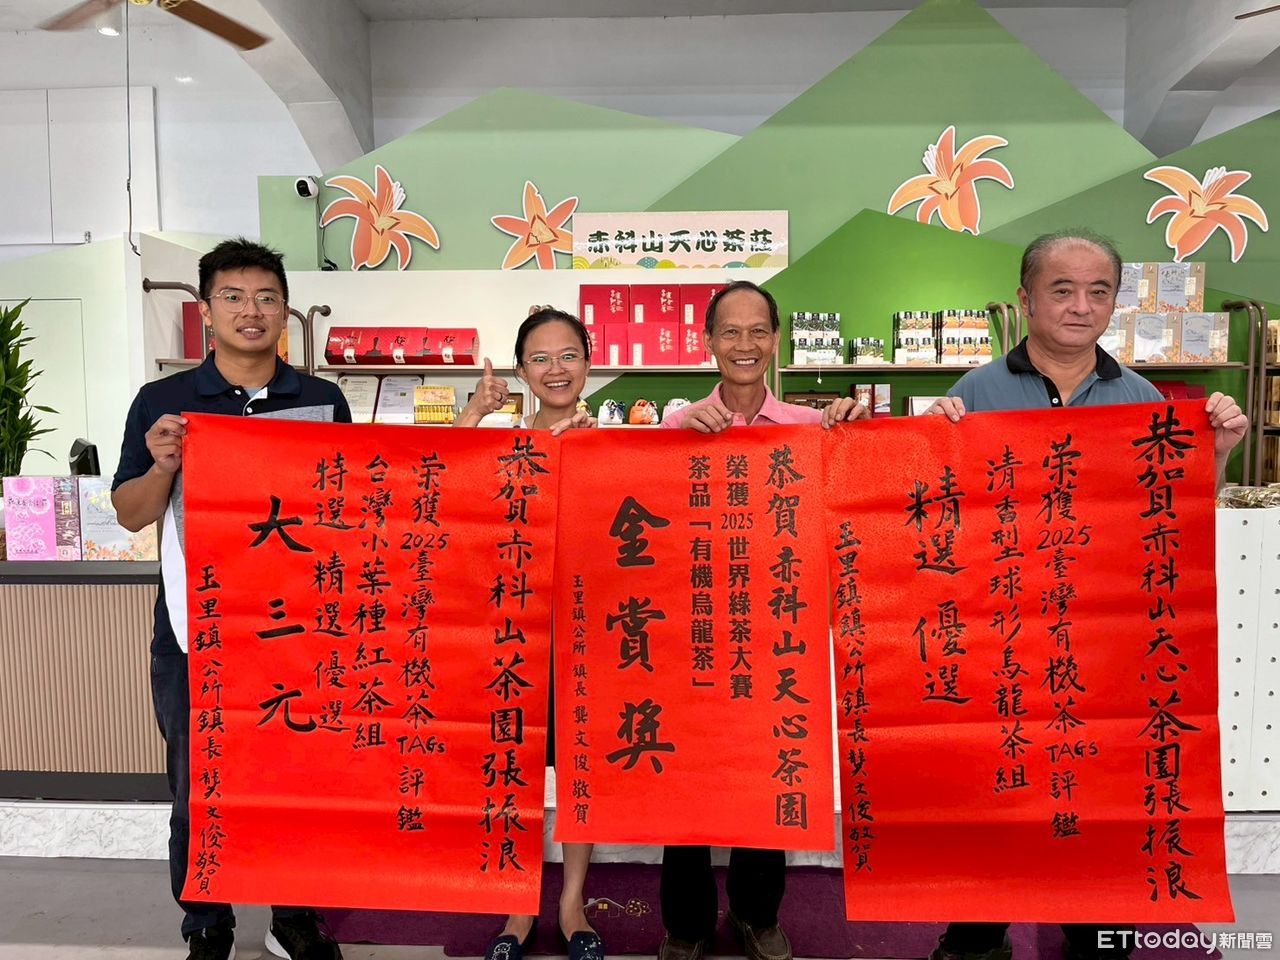 赤科山天心茶莊
恭賀赤科山茶園張振浪
榮獲2025臺灣有機茶TAGs評鑑
台灣小葉種紅茶組
特選 精選 優選
大三元
玉里鎮公所鎮長龔文俊敬賀
恭賀赤科山天心茶園
榮獲2025世界綠茶大賽
茶品「有機烏龍茶」
金賞獎
玉里鎮公所 鎮長 龔文俊 敬賀
恭賀赤科山天心茶園張振浪
榮獲2025臺灣有機茶TAGs評鑑
清香型球形烏龍茶組
精選 優選
玉里鎮鎮公所鎮長龔文俊敬賀
ETtoday新聞雲